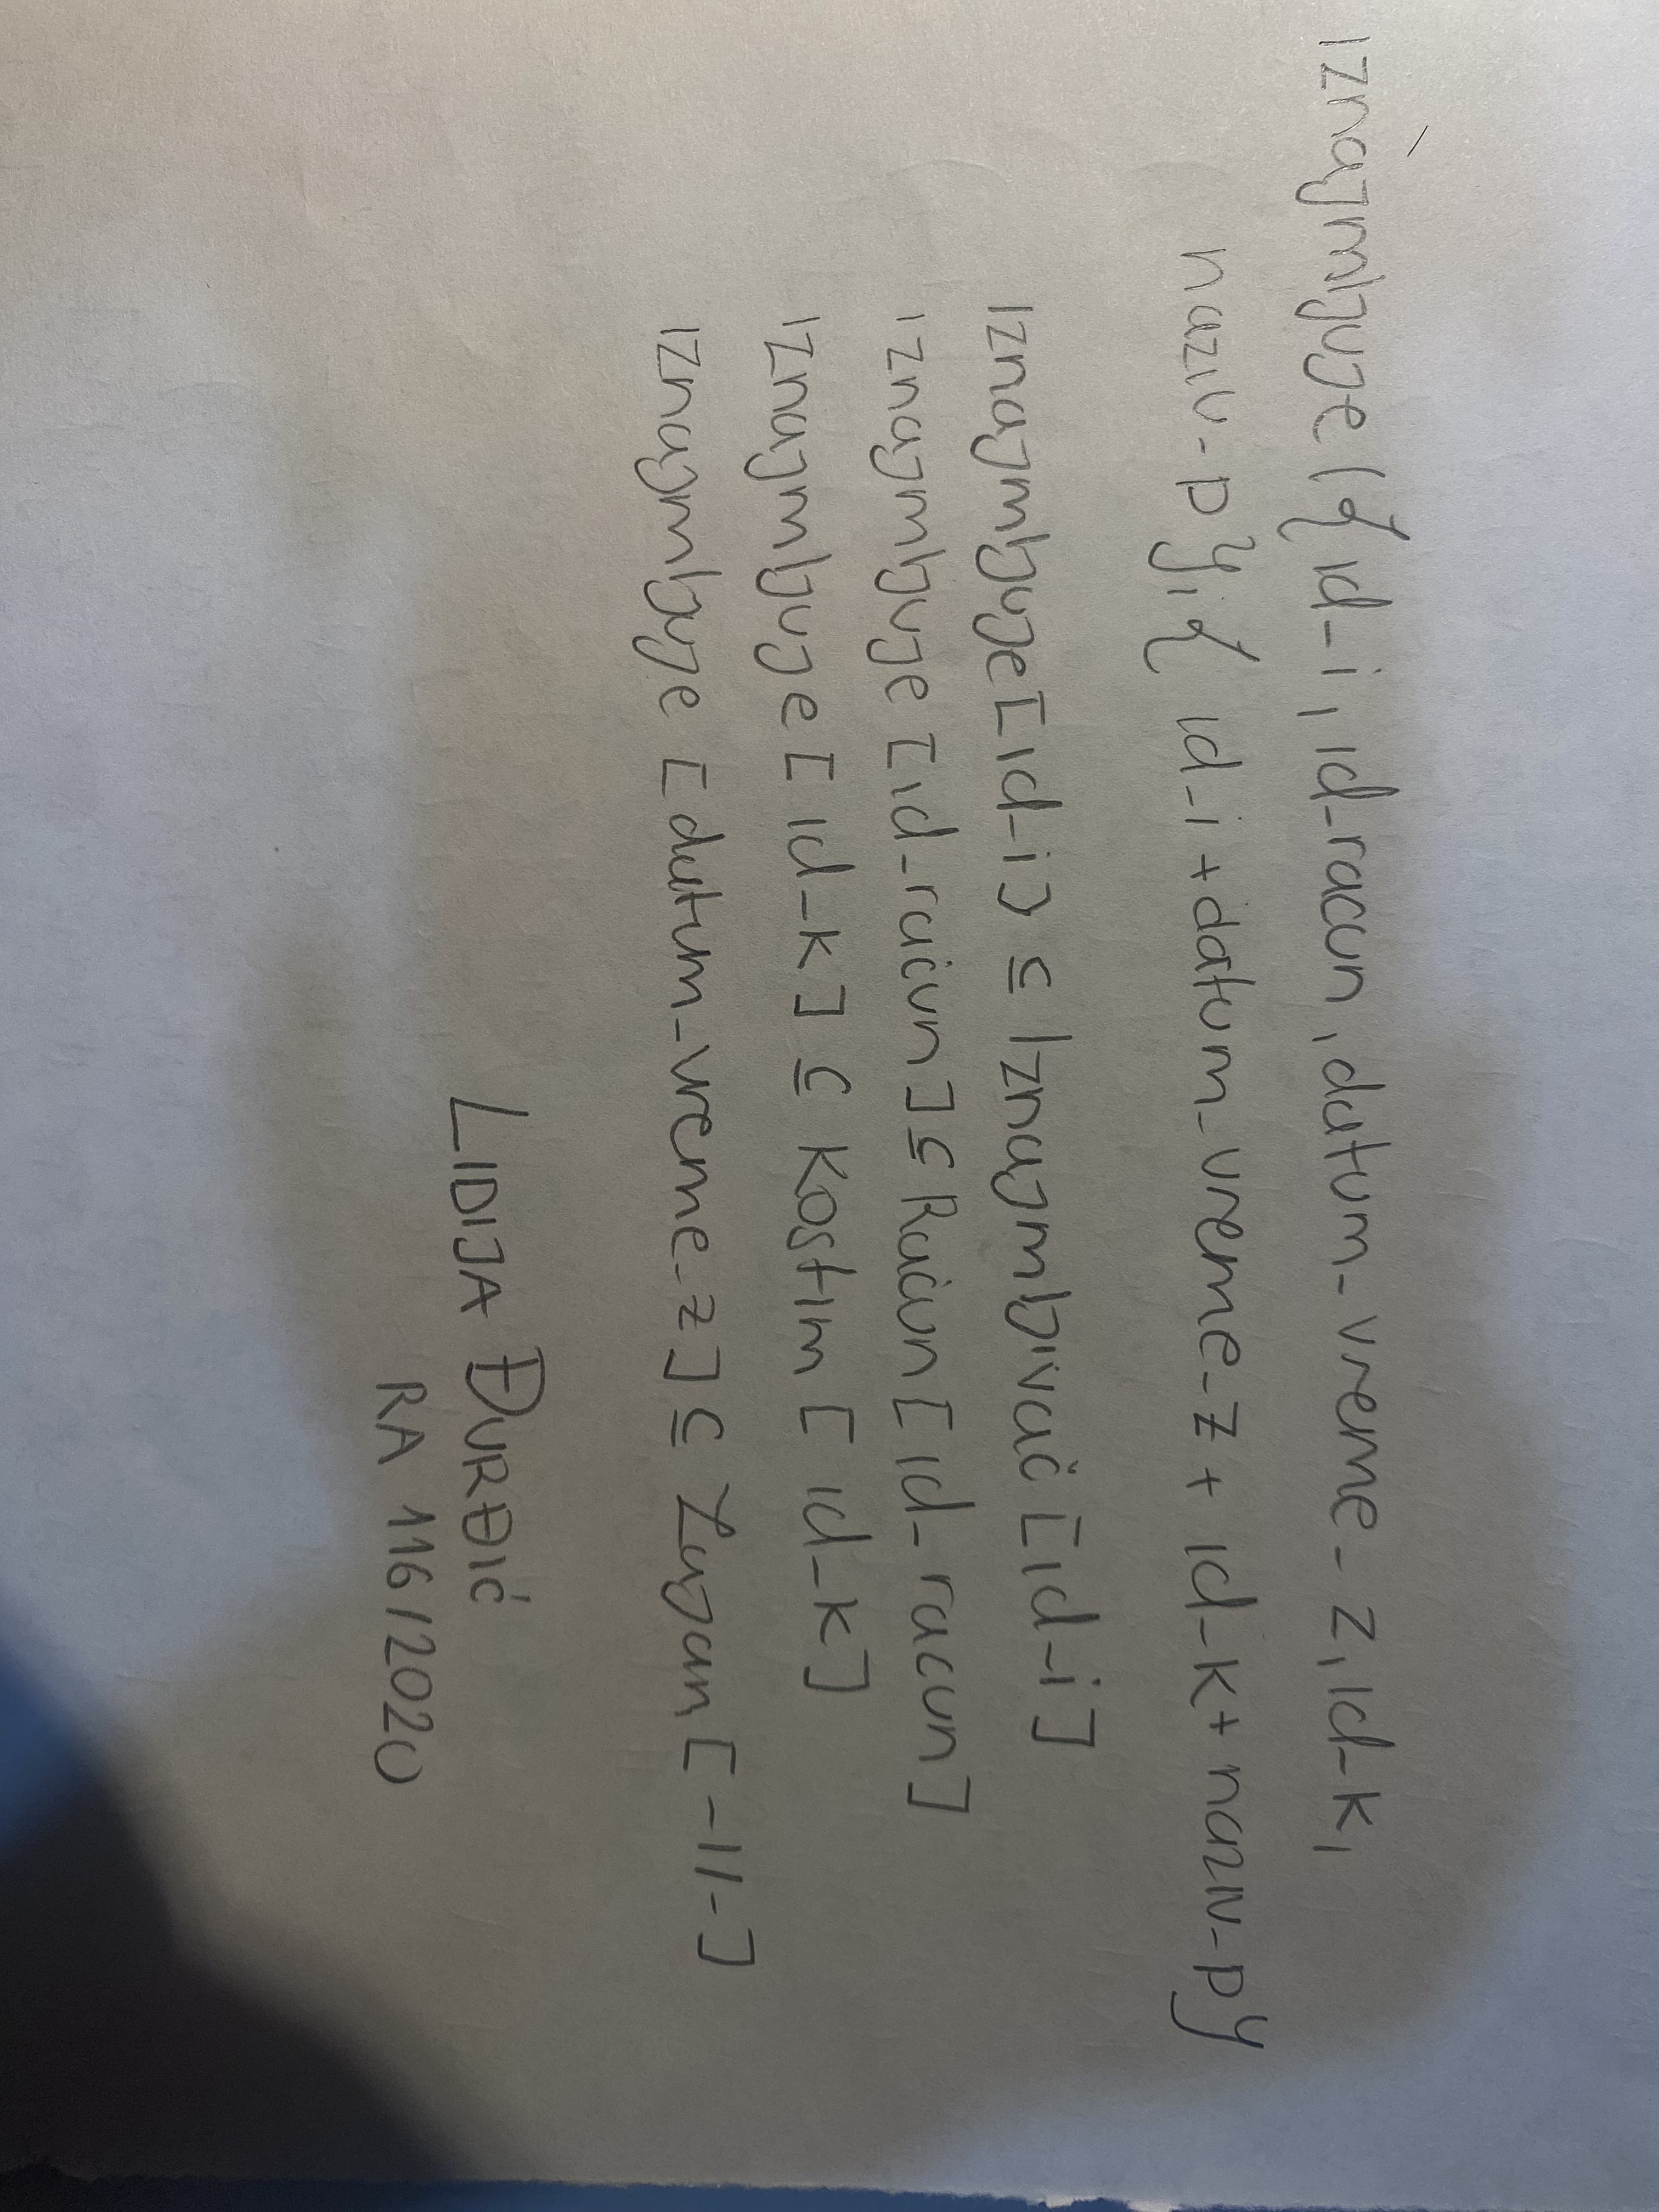 Iznajmljuje ({id-i, id-racun, datum-vreme-z, id-k,
naziv-p},{ id-i+datum-vreme-z+ id-k+naziv-p}
Iznajmljuje[id-i] ⊆ Iznajmljivač [id-i]
Iznajmljuje [id-račun] ⊆ Račun [id-racun]
Iznajmljuje [id-k] ⊆ Kostim [id-k]
Iznajmljuje [datum-vreme-z] ⊆ [-11-]
LIDIJA ĐURĐIĆ
RA 116/2020